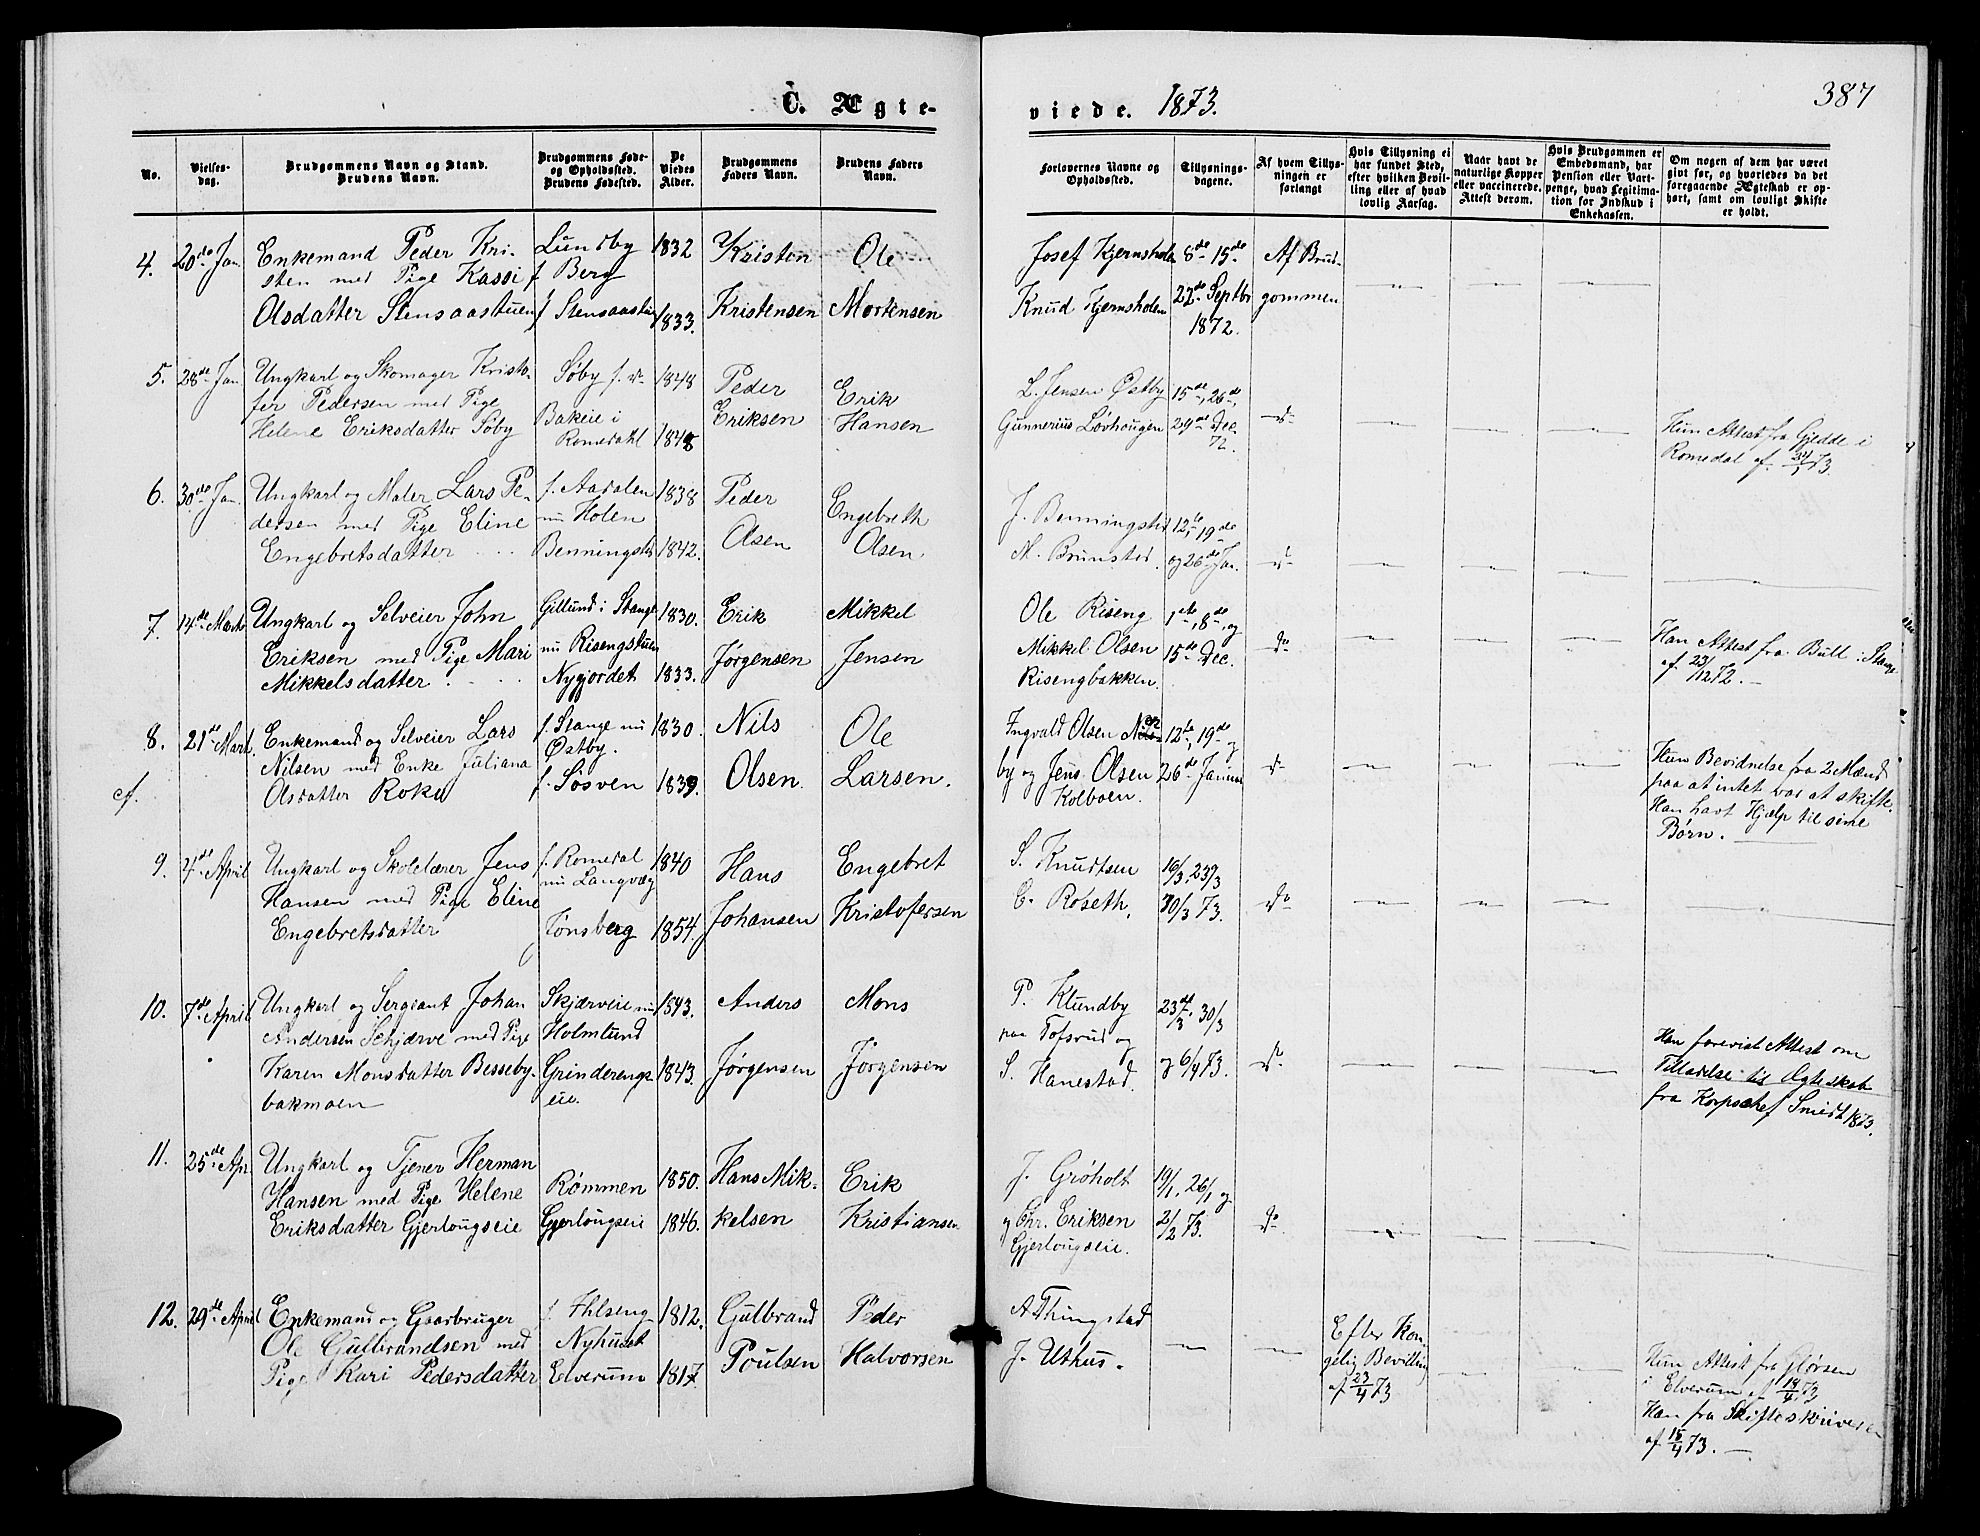 387
C. Ægte-
viede. 1873.
No.
Vielses-
dag.
Brudgommens Navn og Stand.
Brudens Navn.
Brudgommens Føde-
og Opholdssted.
Brudens Fødested.
De
Viedes
Alder.
Brudgommens
Faders Navn.
Brudens Faders
Navn.
Forlovernes Navne og
Opholdssted.
Tillysnings-
dagene.
Af hvem Tillys-
ningen er
forlangt
Hvis Tillysning ei
har fundet Sted,
efter hvilken Bevil-
ling eller af hvad
lovlig Aarsag.
Naar havt de
naturlige Kopper
eller vaccinerede.
Attest derom.
Hvis Brudgommen er
Embedsmand, har
Pension eller Vart-
penge, hvad Legitima-
tion for Indskud i
Enkekassen.
Om nogen af dem har været
givt før, og hvorledes da det
foregaaende Ægteskab er op-
hørt, samt om lovligt Skifte
er holdt.
4. 20de Jan
Enkemand Peder Kri-
sten med Pige Kassi
Olsdatter Stensaastuen
Lundby
f Berg
f Stensaastu
1832
1833.
Kristen
Kristensen
Ole
Mortensen
Josef Kjernsholen
Knud Kjernsholen
8de 15de
22de Septbr
1872.
Af Brud-
gommen
5. 28de Jan
Ungkarl og Skomager Kristo-
fer Pedersen med Pige
Helene Eriksdatter Søby
Søby f. do
Bakeie i
Romedahl
1848
1848
Peder
Eriksen
Erik
Hansen
L. Jensen Østby
Gunnerius Løvhougen
15de, 26de,
29de Dec.
72.
do
Hun Attest fra Gjedde i
Romedal af 24/1 73
6. 30de Jan.
Ungkarl og Maler Lars Pe-
dersen med Pige Eline
Engebretsdatter
f. Aadalen
nu Holen
Benningstd
1838
1842.
Peder
Olsen
Engebreth
Olsen
J. Benningstd
M. Brunstad.
12te, 19de
og 26de Jan.
do
7. 14de Marts
Ungkarl og Selveier John
Eriksen med Pige Mari
Mikkelsdatter
Gillund i Stange
nu Risengstuen
Nygjordet
1830.
1833.
Erik
Jørgensen
Mikkel
Jensen
Ole Riseng
Mikkel Olsen
Risengbakken.
1ste, 8de, og
15de Dec.
do
Han Attest fra Bull i Stange
af 23/12 72.
8. 21de Mart.
cf.
Enkemand og Selveier Lars
Nilsen med Enke Juliana
Olsdatter Roku
f. Stange nu
Østby.
f. Søsven
1830.
1839.
Nils
Olsen.
Ole
Larsen.
Ingvald Olsen
by og Jens Olsen
Kolboen.
12te, 19de og
26de Januar
do
Hun Bevidnelse fra 2 Mænd
paa at intet var at skifte.
Han havt Hjælp til sine
Børn.
9. 4de April
Ungkarl og Skolelærer Jens
Hansen med Pige Eline
Engebretsdatter
f. Romedal
nu Langvæg
Tønsberg
1840
1854.
Hans
Johansen
Engebret
Kristofersen
S. Knudtsen
C. Roseth.
16/3, 23/3
30/3 73.
do
10. 7de April
Ungkarl og Sergeant Johan
Andersen Schjærve med Pige
Karen Monsdatter Besseby-
bakmoen
Skjærveie nu
Holmlund
Grinderengs-
eie.
1843.
1843.
Anders
Jørgensen
Mons
Jørgensen
P. Klundby
paa Tofsrud og
S. Hanestad.
23de/3, 30/3
og 6/4 73.
do
Han forevist Attest om
Tilladelse til Ægteskab
fra Korpschef Smidt 1873.
11. 25de Apr
Ungkarl og Tjener Herman
Hansen med Pige Helene
Eriksdatter Gjerlougseie
Rømmen
Gjerlougseie
1850.
1846.
Hans Mik-
kelsen
Erik
Kristiansen
J. Grøholt
og Chr. Eriksen
Gjerlougseie.
19/1, 26/1 og
2/2 73.
do
12. 29de April
Enkemand og Gaardbruger
Ole Gulbrandsen med
Pige Kari Pedersdatter
f. Ihlseng
Nyhuset
Elverum
1812.
1817.
Gulbrand
Poulsen
Peder
Halvorsen
A Thingstad
J. Uthus.
Efter Kon-
gelig Bevilling
af 23/4 73
Hun Attest fra Hørsen
i Elverum af 14/4 73
Han fra Skifteskriveren
af 15/4 73.